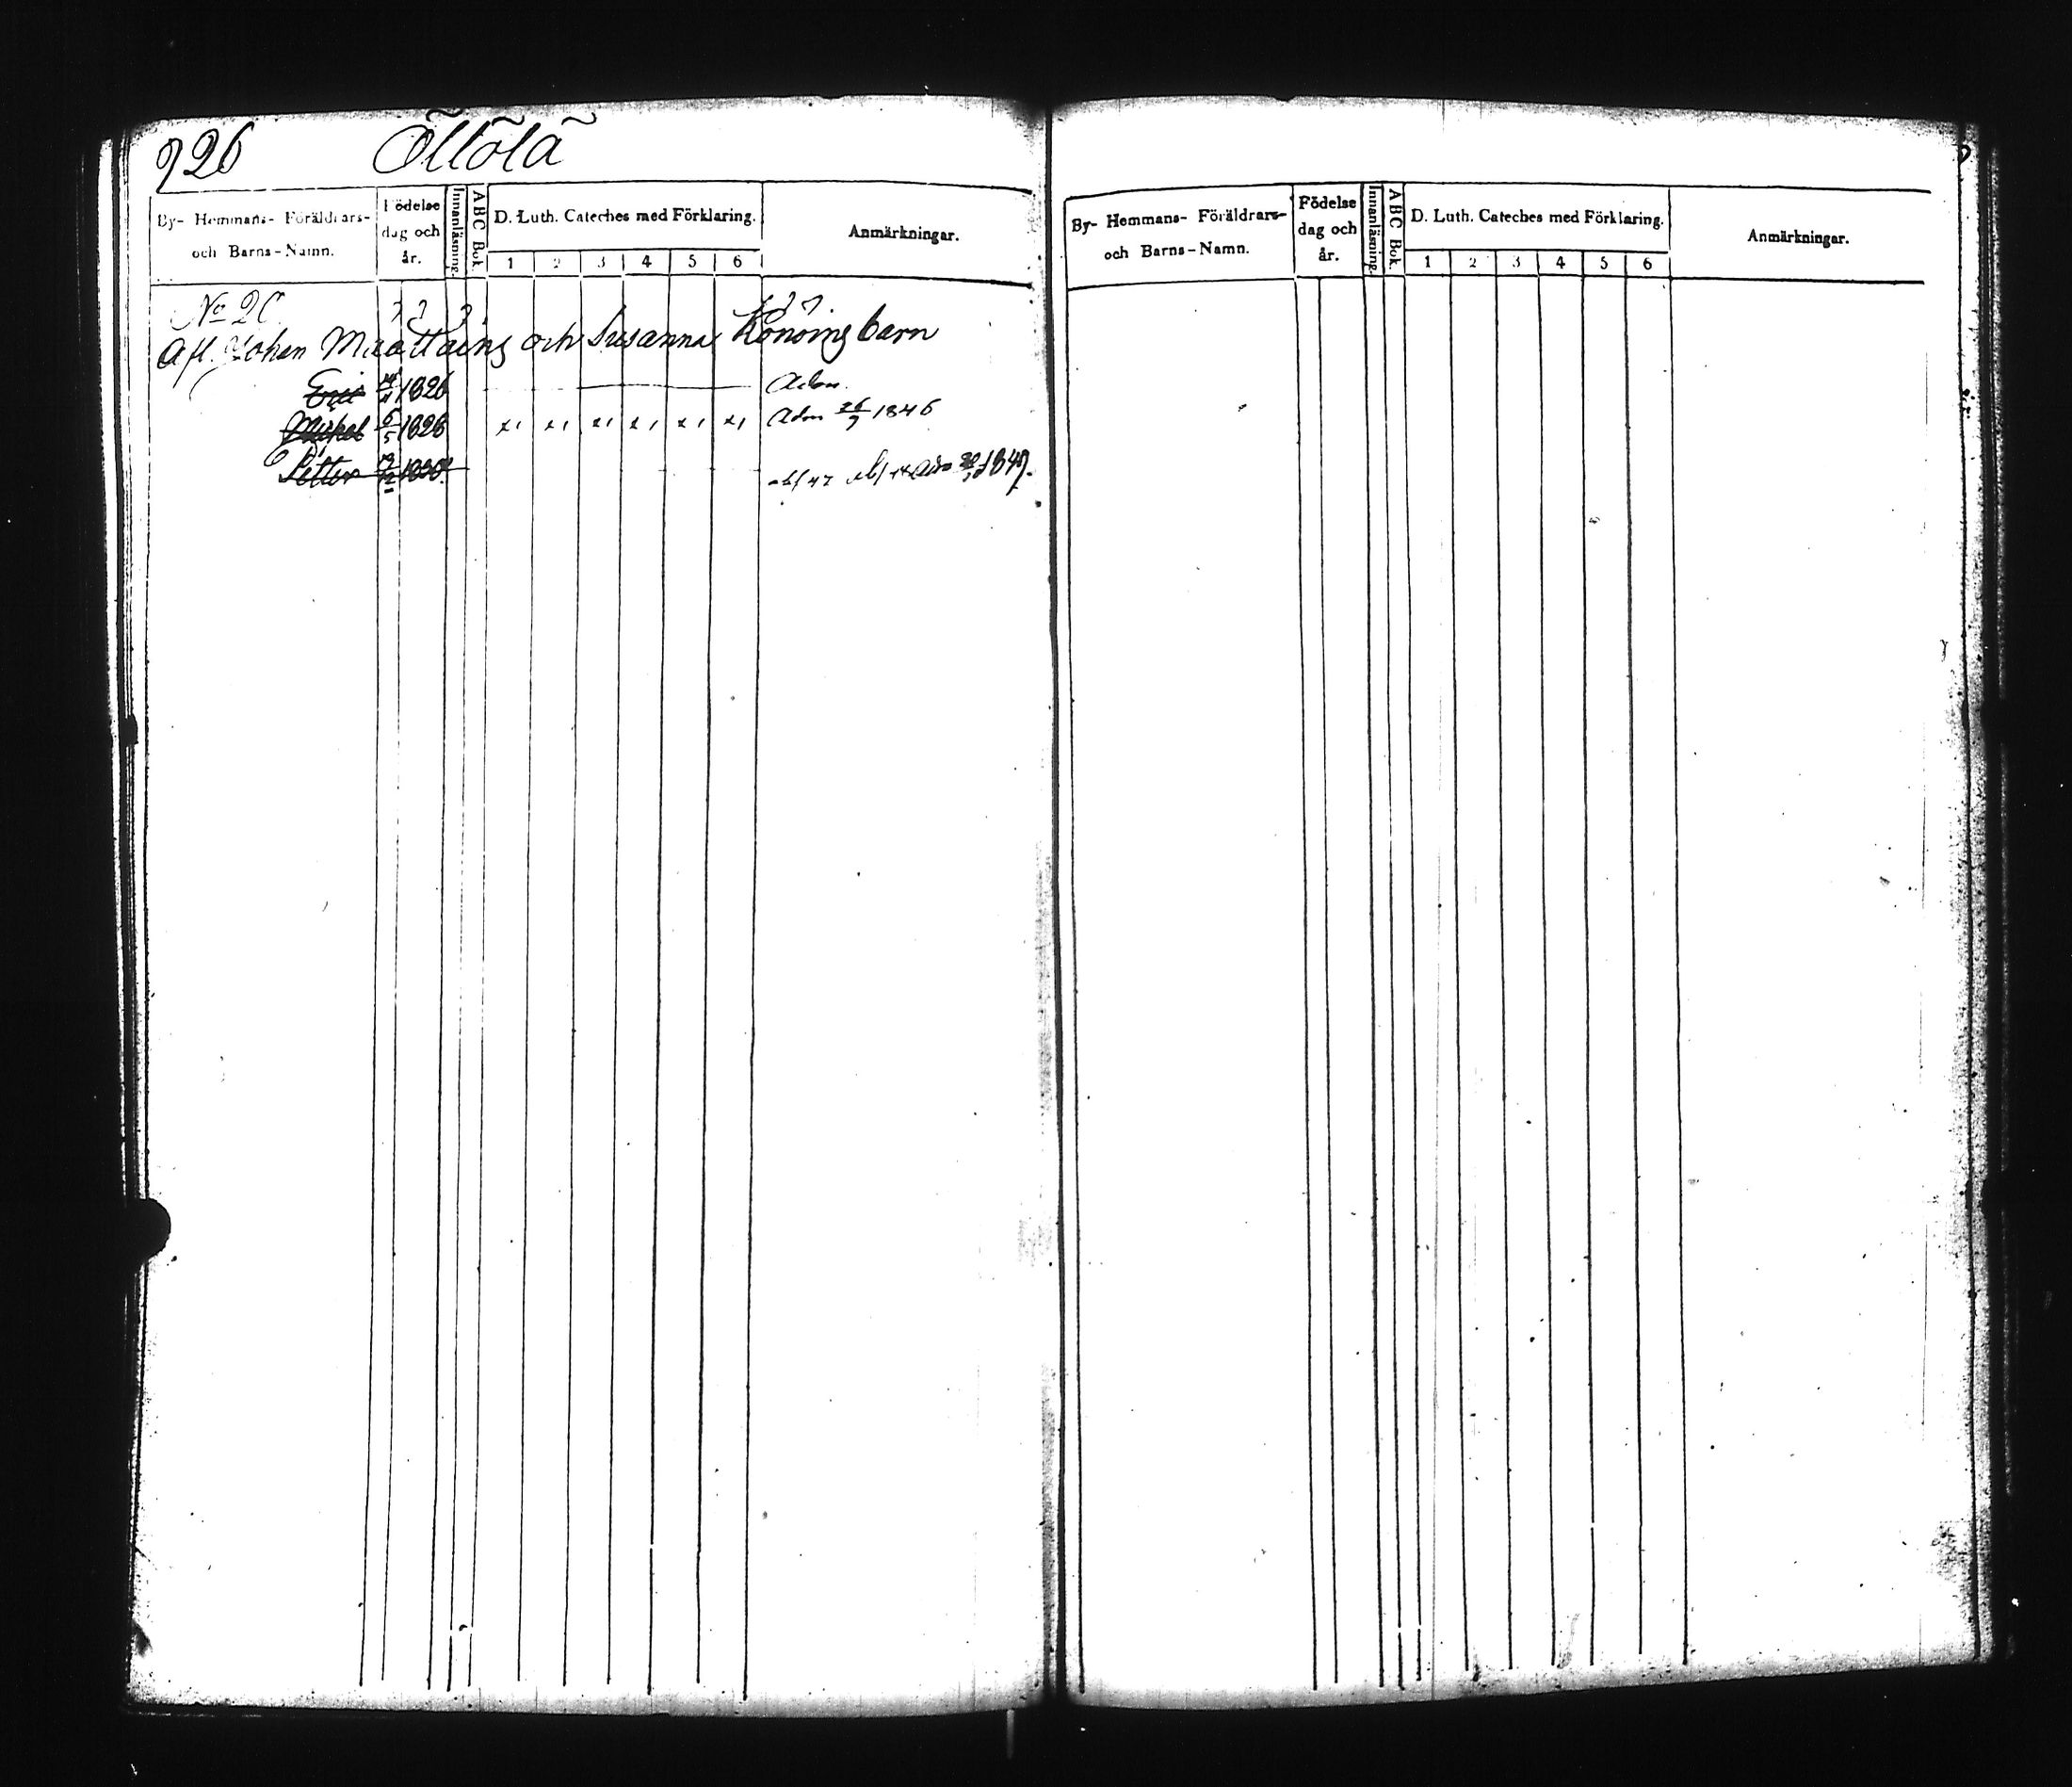 926 Öllölä
By- Hemmans- Föräldrars-
och Barns-Namn.
Födelse
dag och
år.
Innanläsning.
ABC Bok.
D. Luth. Cateches med Förklaring.
1 2 3 4 5 6
Anmärkningar.
No 20
Afl. Johan Muottoins och Susanna Könöins barn
Eric 1826 Adm.
Michel 6/5 1828 x1 x1 x1 x1 x1 x1 Adm 26/9 1846
Petter 1830 1847.
By- Hemmans- Föräldrars-
och Barns-Namn.
Födelse
dag och
år.
Innanläsning.
ABC Bok.
D. Luth. Cateches med Förklaring.
1 2 3 4 5 6
Anmärkningar.